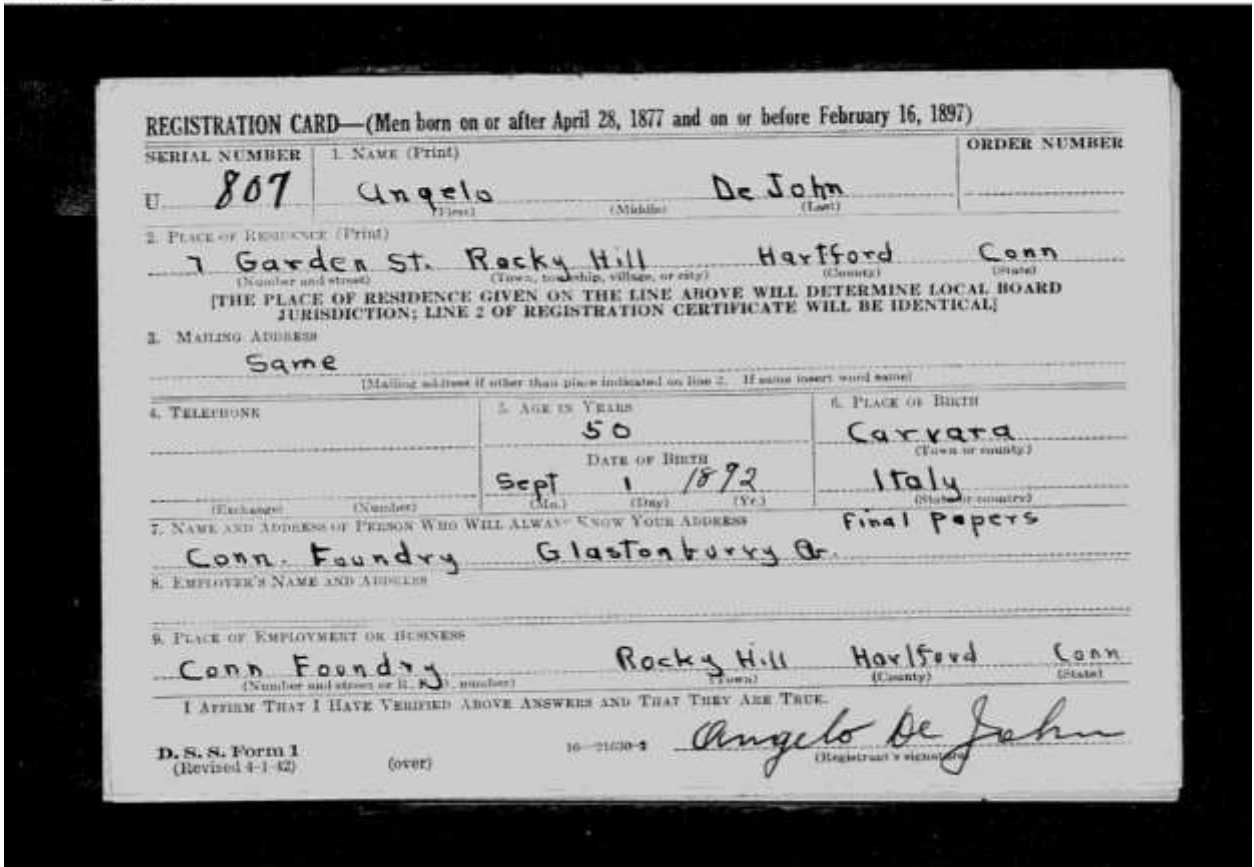 REGISTRATION CARD—(Men born on or after April 28, 1877 and on or before February 16, 1897)
SERIAL NUMBER 1. NAME (Print) ORDER NUMBER
U 807 Angelo De John
(First) (Middle) (Last)
2. PLACE OF RESIDENCE (Print)
7 Garden St. Rocky Hill Hartford Conn
(Number and street) (Town, township, village, or city) (County) (State)
[THE PLACE OF RESIDENCE GIVEN ON THE LINE ABOVE WILL DETERMINE LOCAL BOARD
JURISDICTION; LINE 2 OF REGISTRATION CERTIFICATE WILL BE IDENTICAL]
3. MAILING ADDRESS
Same
[Mailing address if other than place indicated on line 2. If same insert word same]
4. TELEPHONE 5. AGE IN YEARS 6. PLACE OF BIRTH
50 Carrara
(Town or county)
DATE OF BIRTH
Sept 1 1892 Italy
(Exchange) (Number) (Mo.) (Day) (Yr.) (State or country)
7. NAME AND ADDRESS OF PERSON WHO WILL ALWAYS KNOW YOUR ADDRESS Final Papers
Conn. Foundry Glastonburry
8. EMPLOYER'S NAME AND ADDRESS
9. PLACE OF EMPLOYMENT OR BUSINESS
Conn Foundry Rocky Hill Hartford Conn
(Number and street or R. F. D. number) (Town) (County) (State)
I AFFIRM THAT I HAVE VERIFIED ABOVE ANSWERS AND THAT THEY ARE TRUE.
D. S. S. Form 1
(Revised 4-1-42) (over) 16—21630-2 Angelo De John
(Registrant's signature)